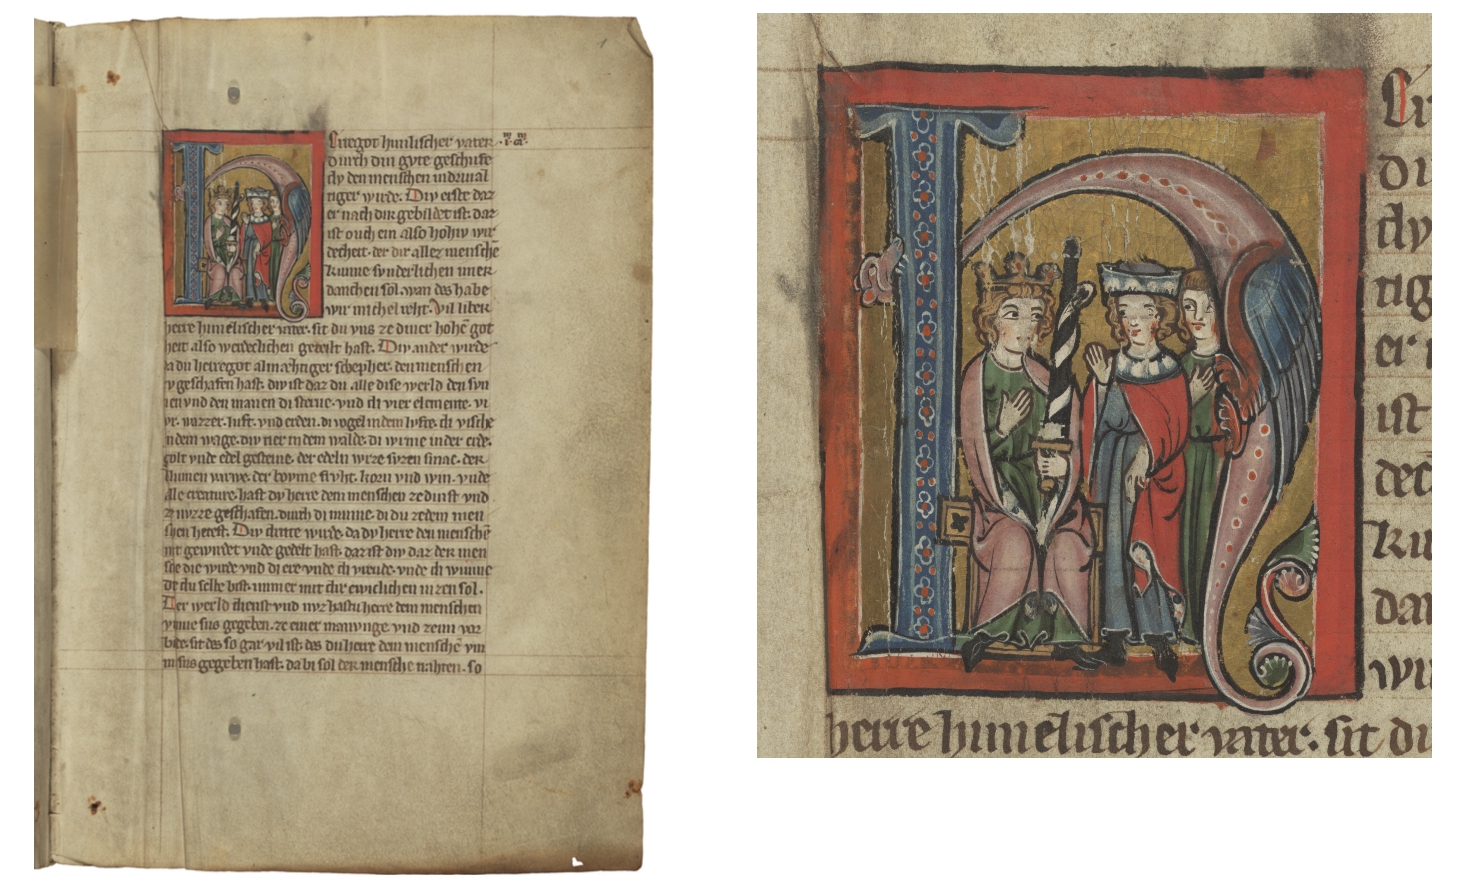 Hrregot himilischer vater
durch din gvte geschvfe
dv den menschen in drival
tiger wirde. Div erste daz
er nach dir gebildet ist. daz
ist ouch ein also hohiv wir
decheit. der dir allez mensche
kunne svnderlichen imer
danchen sol. wan des habe
wir michel reht. Vil liber
herre himelischer vater. sit du vns ze diner hohen got
heit also werdeclichen geteilt hast. Div ander wirde
da du herregot almæhtiger schepher den menschen
geschafen hast. div ist daz du alle dise werld den svn
nen vnd den manen di sterne. vnd di vier elemente. vi
vr. wazzer. luft. vnd erden. di vogel in dem lvfte. di vische
in dem wage. div tier in dem walde. di wrme in der erde.
golt vnde edel gesteine. der edeln wrze svzen smac. der
blumen varwe. der boyme frvht. korn vnd win. vnde
alle creature. hast dv herre dem menschen ze dinst vnd
ze nvzze geschafen. durch di minne. di du zedem men
schen hetest. Div dritte wirde. da dv herre den mensche
mit gewirdet vnde gedelt hast. daz ist div daz der men
sche die wirde vnd di ere vnde di vreude. vnde di wunne
di du selbe bist. immer mit dir ewichlichen niezen sol.
Der werld dienst vnd nvz hastu herre dem menschen
vmme sus gegeben. ze einer manvnge vnd zeim vor
bilde. sit des so gar vil ist. des du herre dem mensche vm
m sus gegeben hast. da bi sol der mensche nahten. so
herre himelischer vater. sit du